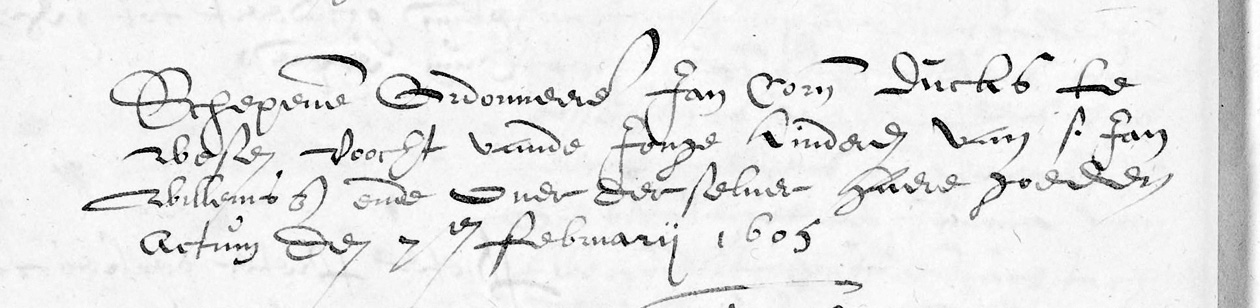 Schepenen Ordonneere Jan Corn Dircks te
wesen voocht vande Jonge kinderen van s. Jan
Willemsz ende over derselver haere goederen
Actum den 7en februarij 1605